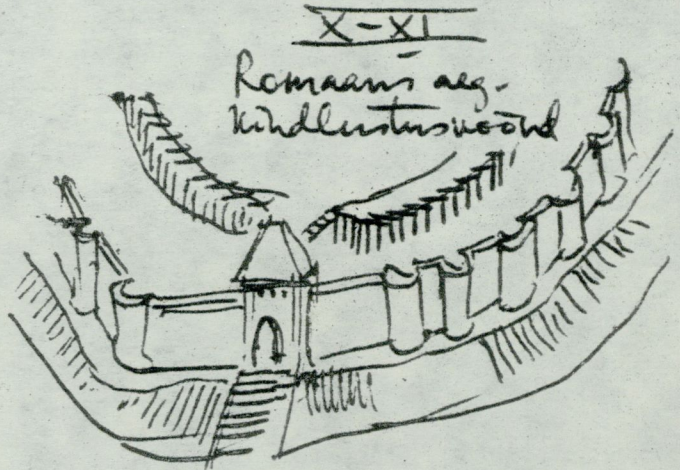 X-XI
Romaanis aeg.
Kindlustusvöönd